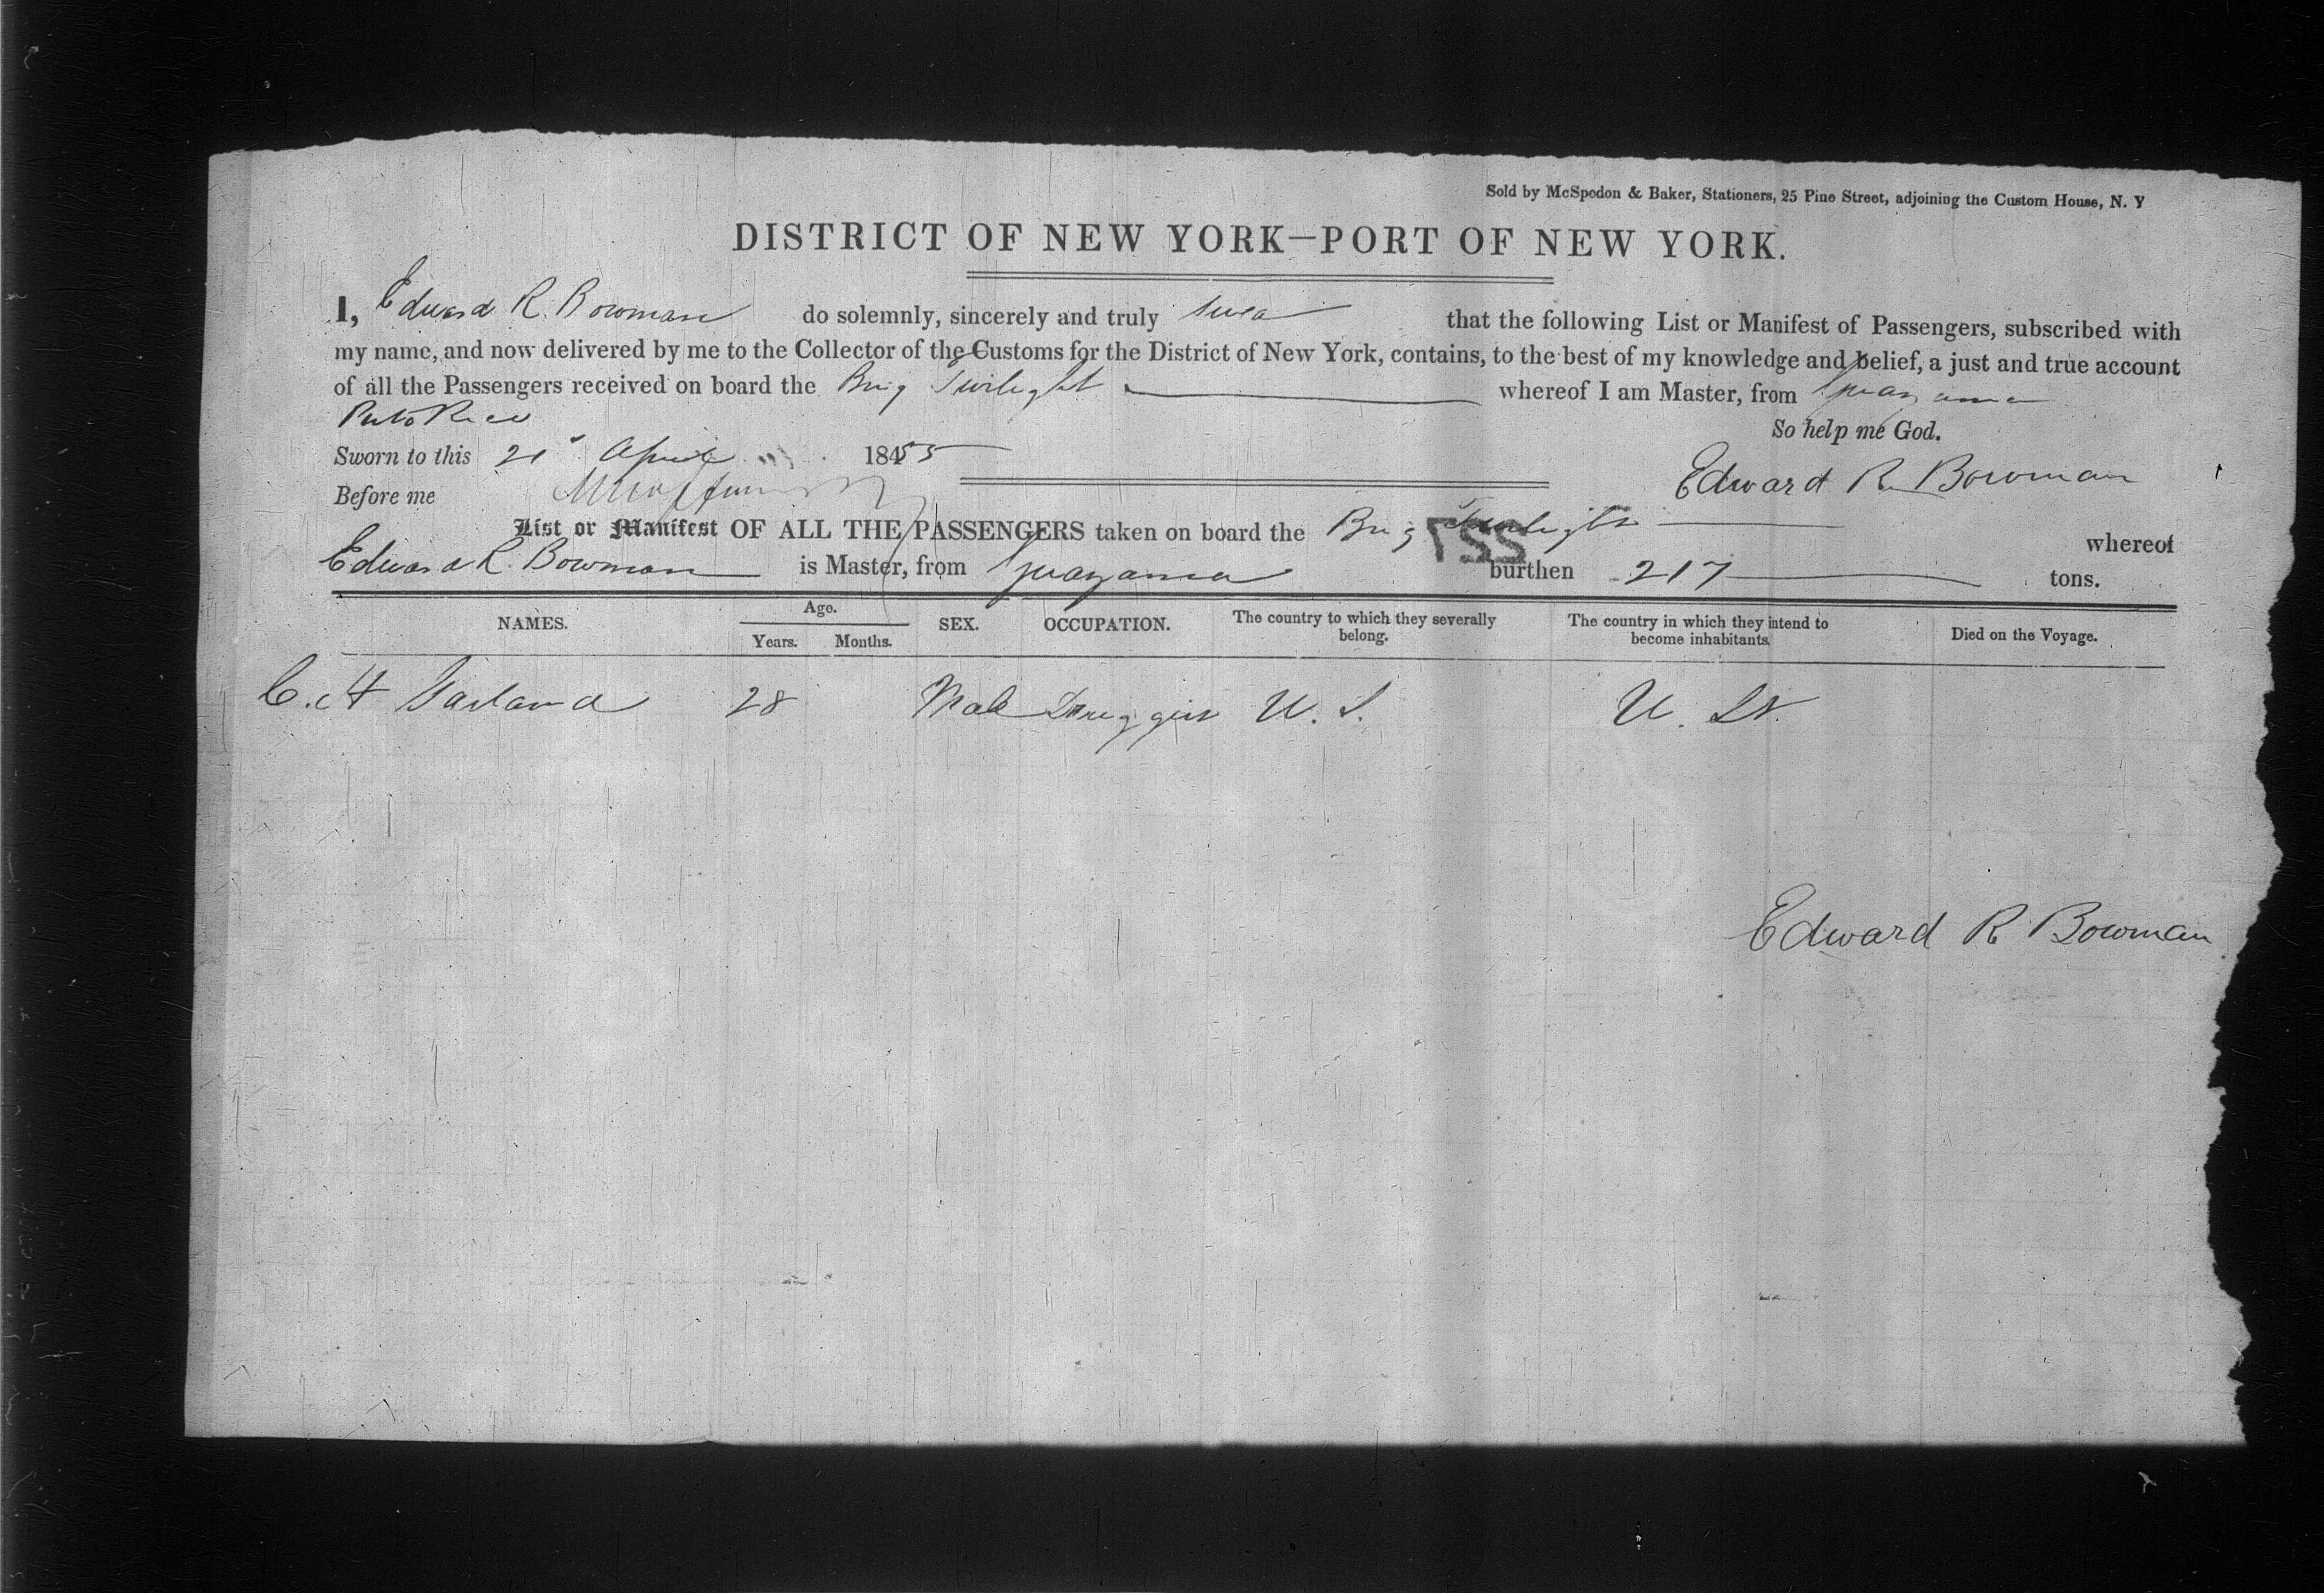 Sold by McSpedon & Baker, Stationers, 25 Pine Street, adjoining the Custom House, N. Y
DISTRICT OF NEW YORK—PORT OF NEW YORK.
I, Edward R. Bowman do solemnly, sincerely and truly swear that the following List or Manifest of Passengers, subscribed with
my name, and now delivered by me to the Collector of the Customs for the District of New York, contains, to the best of my knowledge and belief, a just and true account
of all the Passengers received on board the Brig Twilight whereof I am Master, from Guayama
Porto Rico
So help me God.
Sworn to this 21st April 1855
Edward R. Bowman
Before me
List or Manifest OF ALL THE PASSENGERS taken on board the Brig Twilight whereof
722
Edward R. Bowman is Master, from Guayama burthen 217 tons.
NAMES. Age. Years. Months. SEX. OCCUPATION. The country to which they severally belong. The country in which they intend to become inhabitants. Died on the Voyage.
C. H Garland 28 Male Druggist U. S. U. St
Edward R Bowman